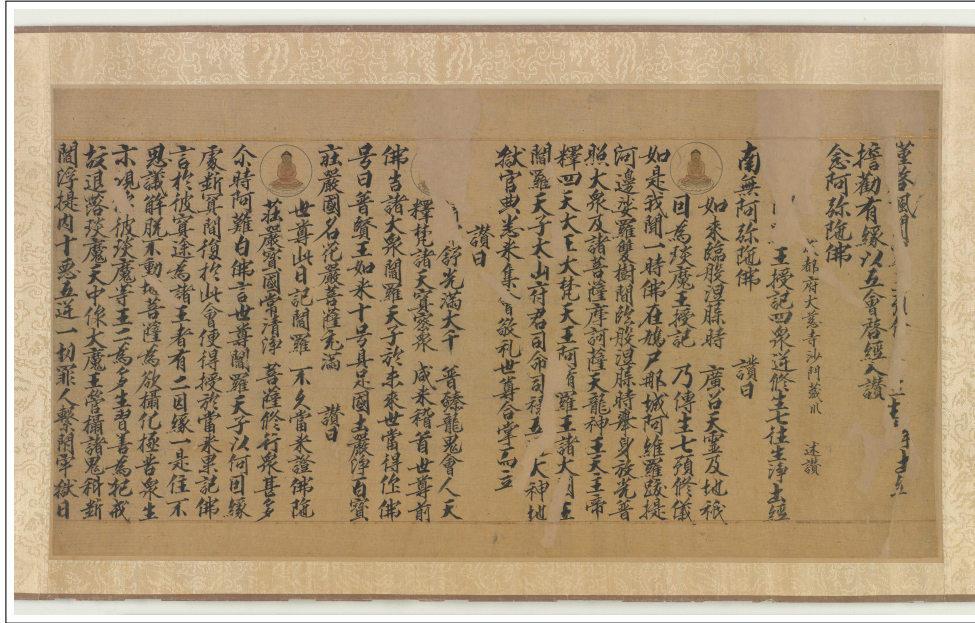 擔勸有緣以五會啓經入讃
念阿弥陁佛
都府大慈寺沙門藏川 述讃
王授記四衆逆修生七往生淨土經
南無阿弥陁佛 讃曰
如來臨般涅脎時 廣召天靈及地祇
因為琰魔王授記 乃傳生七預修儀
如是我聞一時佛在鳩尸那城阿維羅䟦提
河邊娑羅雙樹間臨般涅脎時舉身放光普
照大衆及諸菩薩摩訶薩天龍神王天王帝
釋四天大王大梵天王阿脩羅王諸大國王
閻羅天子太山府君司命司禄五大神地
獄官典悉來集會敬礼世尊合掌而立
讃曰
舒光滿大千 普臻龍鬼會人天
釋梵諸天冥密衆 咸來稽首世尊前
佛告諸大衆閻羅天子於未來世當得作佛
号曰普賢王如来十号具足國土嚴淨百寶
莊嚴國名花嚴菩薩充滿 讃曰
世尊此日記閻羅 不久當來證佛陁
莊嚴寶國常清淨 菩薩修行衆甚多
尒時阿難白佛言世尊閻羅天子以何因緣
處斷冥間復於此會便得授於當來果記佛
言於彼冥途為諸王者有二因緣一是住不
思議解脱不動地菩薩為欲攝化極苦衆生
示現彼琰魔等王二為多生習善為犯戒
故退落琰魔天中作大魔王管攝諸鬼科斷
閻浮提内十惡五逆一切罪人繫閉牢獄日